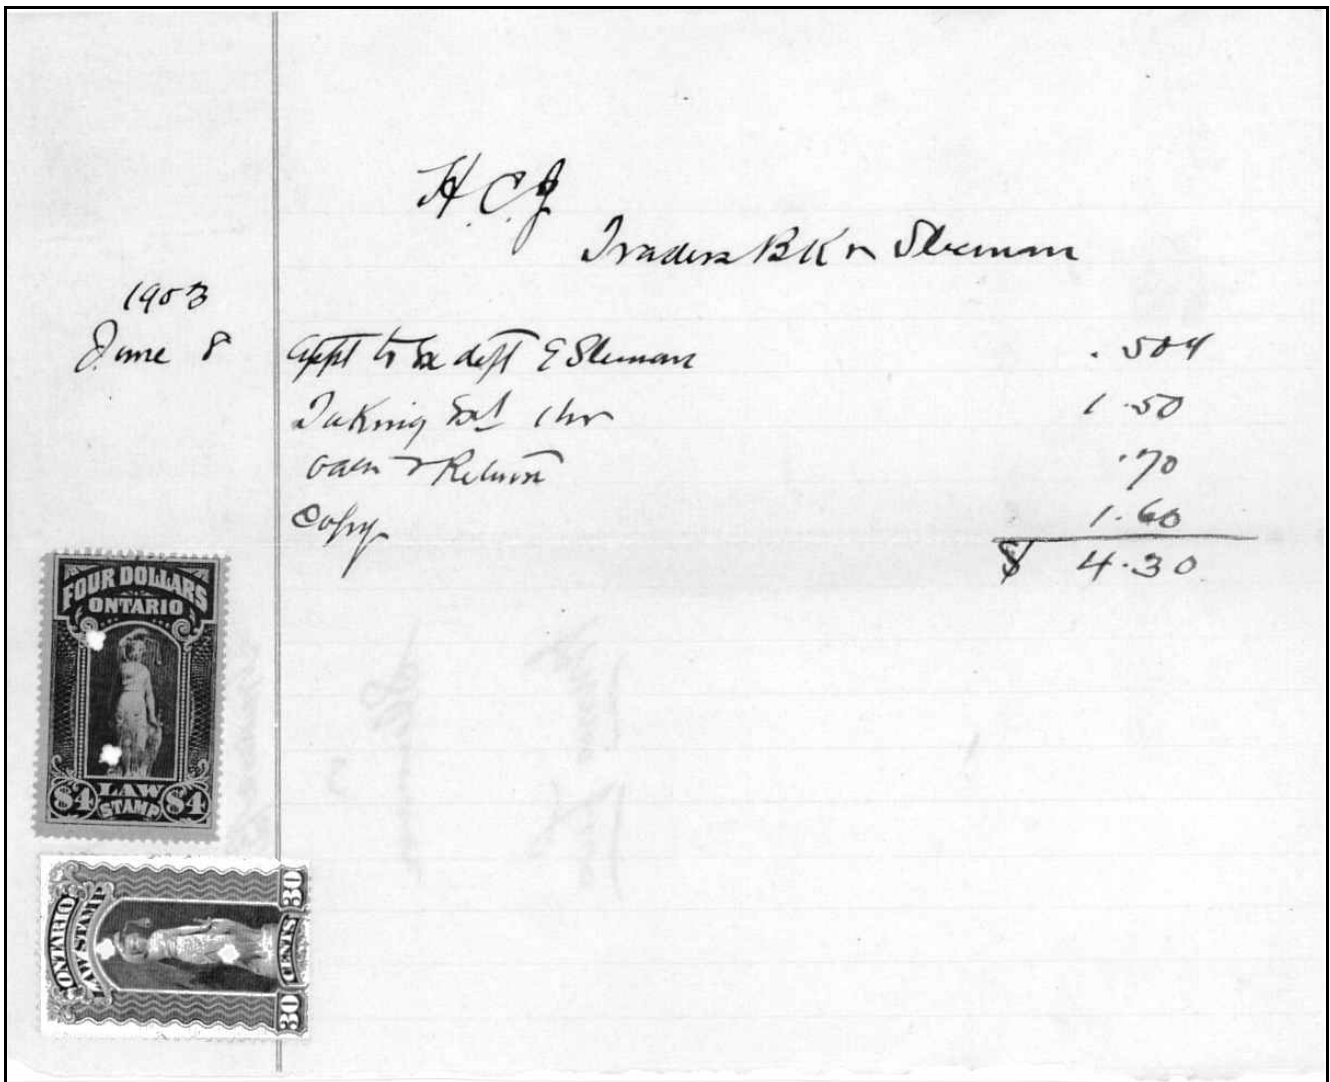 H.C.J
Traders BK v Sleeman
1903
June 8 Appt to Ex deft G Sleeman .50
Taking Ext 1 hr 1.50
oath & Return .70
Copy 1.60
$ 4.30
FOUR DOLLARS
ONTARIO
$4 LAW STAMP $4
ONTARIO
LAW STAMP
30 CENTS 30